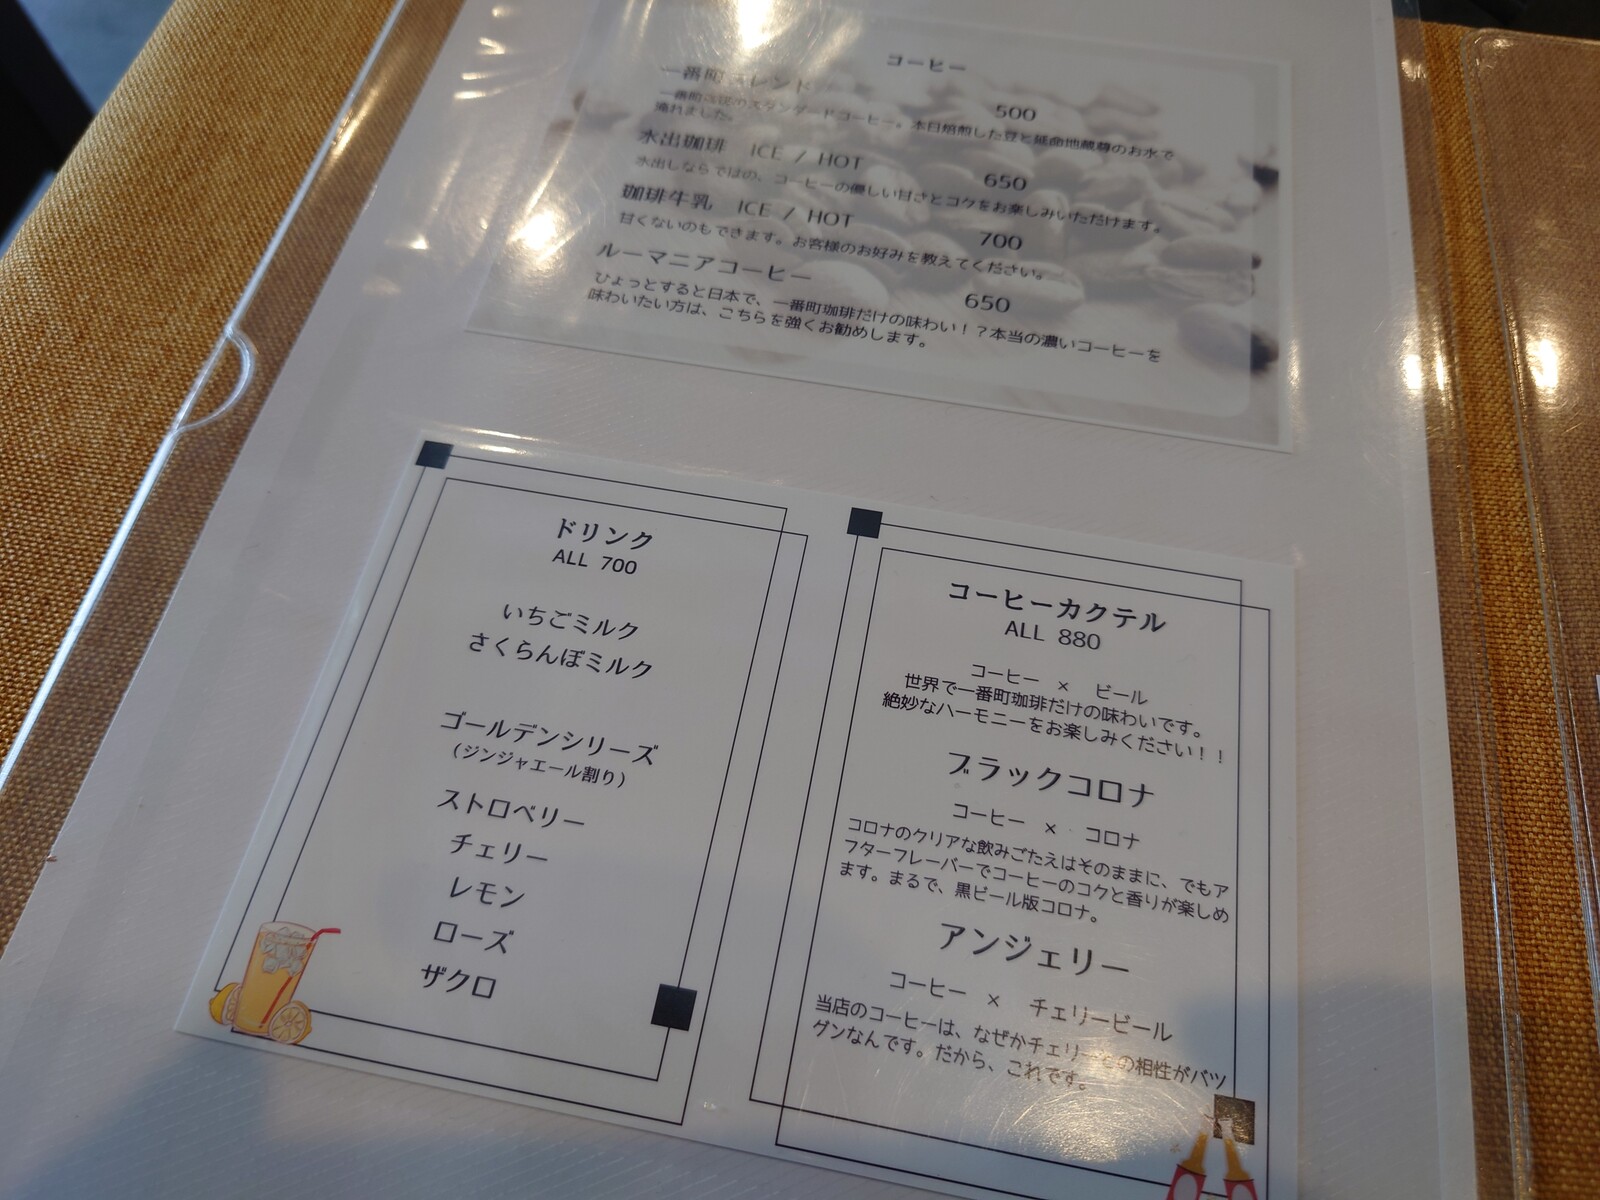 コーヒー
一番町ブレンド 500
一番町珈琲のスタンダードコーヒー。本日焙煎した豆と延命地蔵尊のお水で
淹れました。
水出珈琲 ICE / HOT 650
水出しならではの、コーヒーの優しい甘さとコクをお楽しみいただけます。
珈琲牛乳 ICE / HOT 700
甘くないのもできます。お客様のお好みを教えてください。
ルーマニアコーヒー 650
ひょっとすると日本で、一番町珈琲だけの味わい！？本当の濃いコーヒーを
味わいたい方は、こちらを強くお勧めします。
ドリンク
ALL 700
いちごミルク
さくらんぼミルク
ゴールデンシリーズ
（ジンジャエール割り）
ストロベリー
チェリー
レモン
ローズ
ザクロ
コーヒーカクテル
ALL 880
コーヒー × ビール
世界で一番町珈琲だけの味わいです。
絶妙なハーモニーをお楽しみください！！
ブラックコロナ
コーヒー × コロナ
コロナのクリアな飲みごたえはそのままに、でもア
フターフレーバーでコーヒーのコクと香りが楽しめ
ます。まるで、黒ビール版コロナ。
アンジェリー
コーヒー × チェリービール
当店のコーヒーは、なぜかチェリーとの相性がバツ
グンなんです。だから、これです。